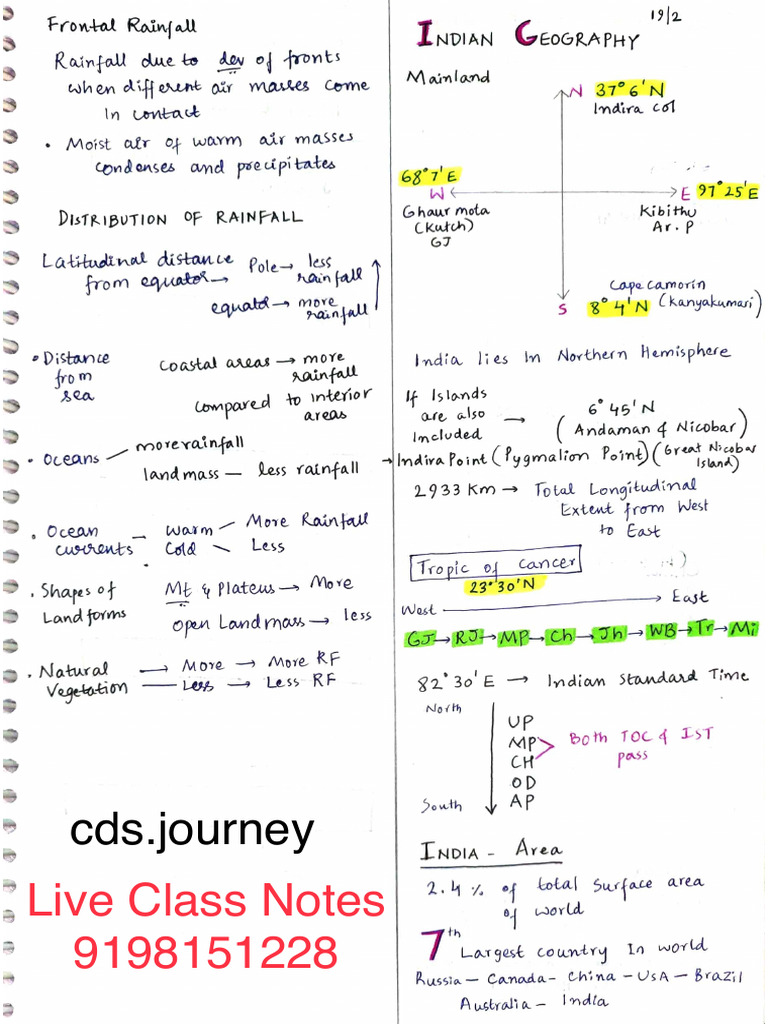 Frontal Rainfall
Rainfall due to dev of fronts
when different air masses come
In contact
• Moist air of warm air masses
condenses and precipitates
DISTRIBUTION OF RAINFALL
Latitudinal distance
from equator → Pole → less
rainfall
equator → more
rainfall
• Distance
from
sea
coastal areas → more
rainfall
compared to interior
areas
• Oceans
more rainfall
land mass — less rainfall
• Ocean
currents
Warm — More Rainfall
Cold — Less
• Shapes of
Land forms
Mt & Plateus → More
Open Land mass → less
• Natural
Vegetation
→ More → More RF
— Less → Less RF
cds.journey
Live Class Notes
9198151228
19/2
INDIAN GEOGRAPHY
Mainland
N 37° 6' N
Indira Col
68° 7' E
W
Ghaur mota
(Kutch)
GJ
E 97° 25' E
Kibithu
Ar. P
Cape camorin
S 8° 4' N (Kanyakumari)
India lies In Northern Hemisphere
If Islands
are also
Included
→ 6° 45' N
(Andaman & Nicobar)
→ Indira Point (Pygmalion Point) (Great Nicobar
Island)
2933 Km → Total Longitudinal
Extent from West
to East
Tropic of Cancer
23° 30' N
West → East
GJ → RJ → MP → Ch → Jh → WB → Tr → Mi
82° 30' E → Indian Standard Time
North
UP
MP
CH
OD
AP
Both TOC & IST
pass
South
INDIA - Area
2.4 % of total surface area
of world
7th Largest country In world
Russia — Canada — China — USA — Brazil
Australia — India